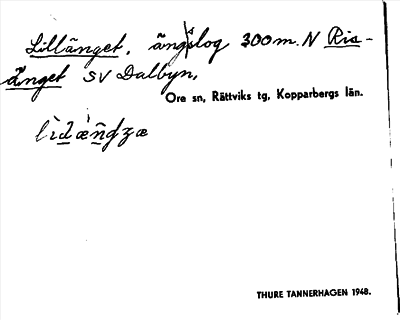 Lillänget. ängslog 300 m. N Ris-
änget SV Dalbyn.
Ore sn, Rättviks tg, Kopparbergs län.
lìdæ̀ñdzæ
THURE TANNERHAGEN 1948.